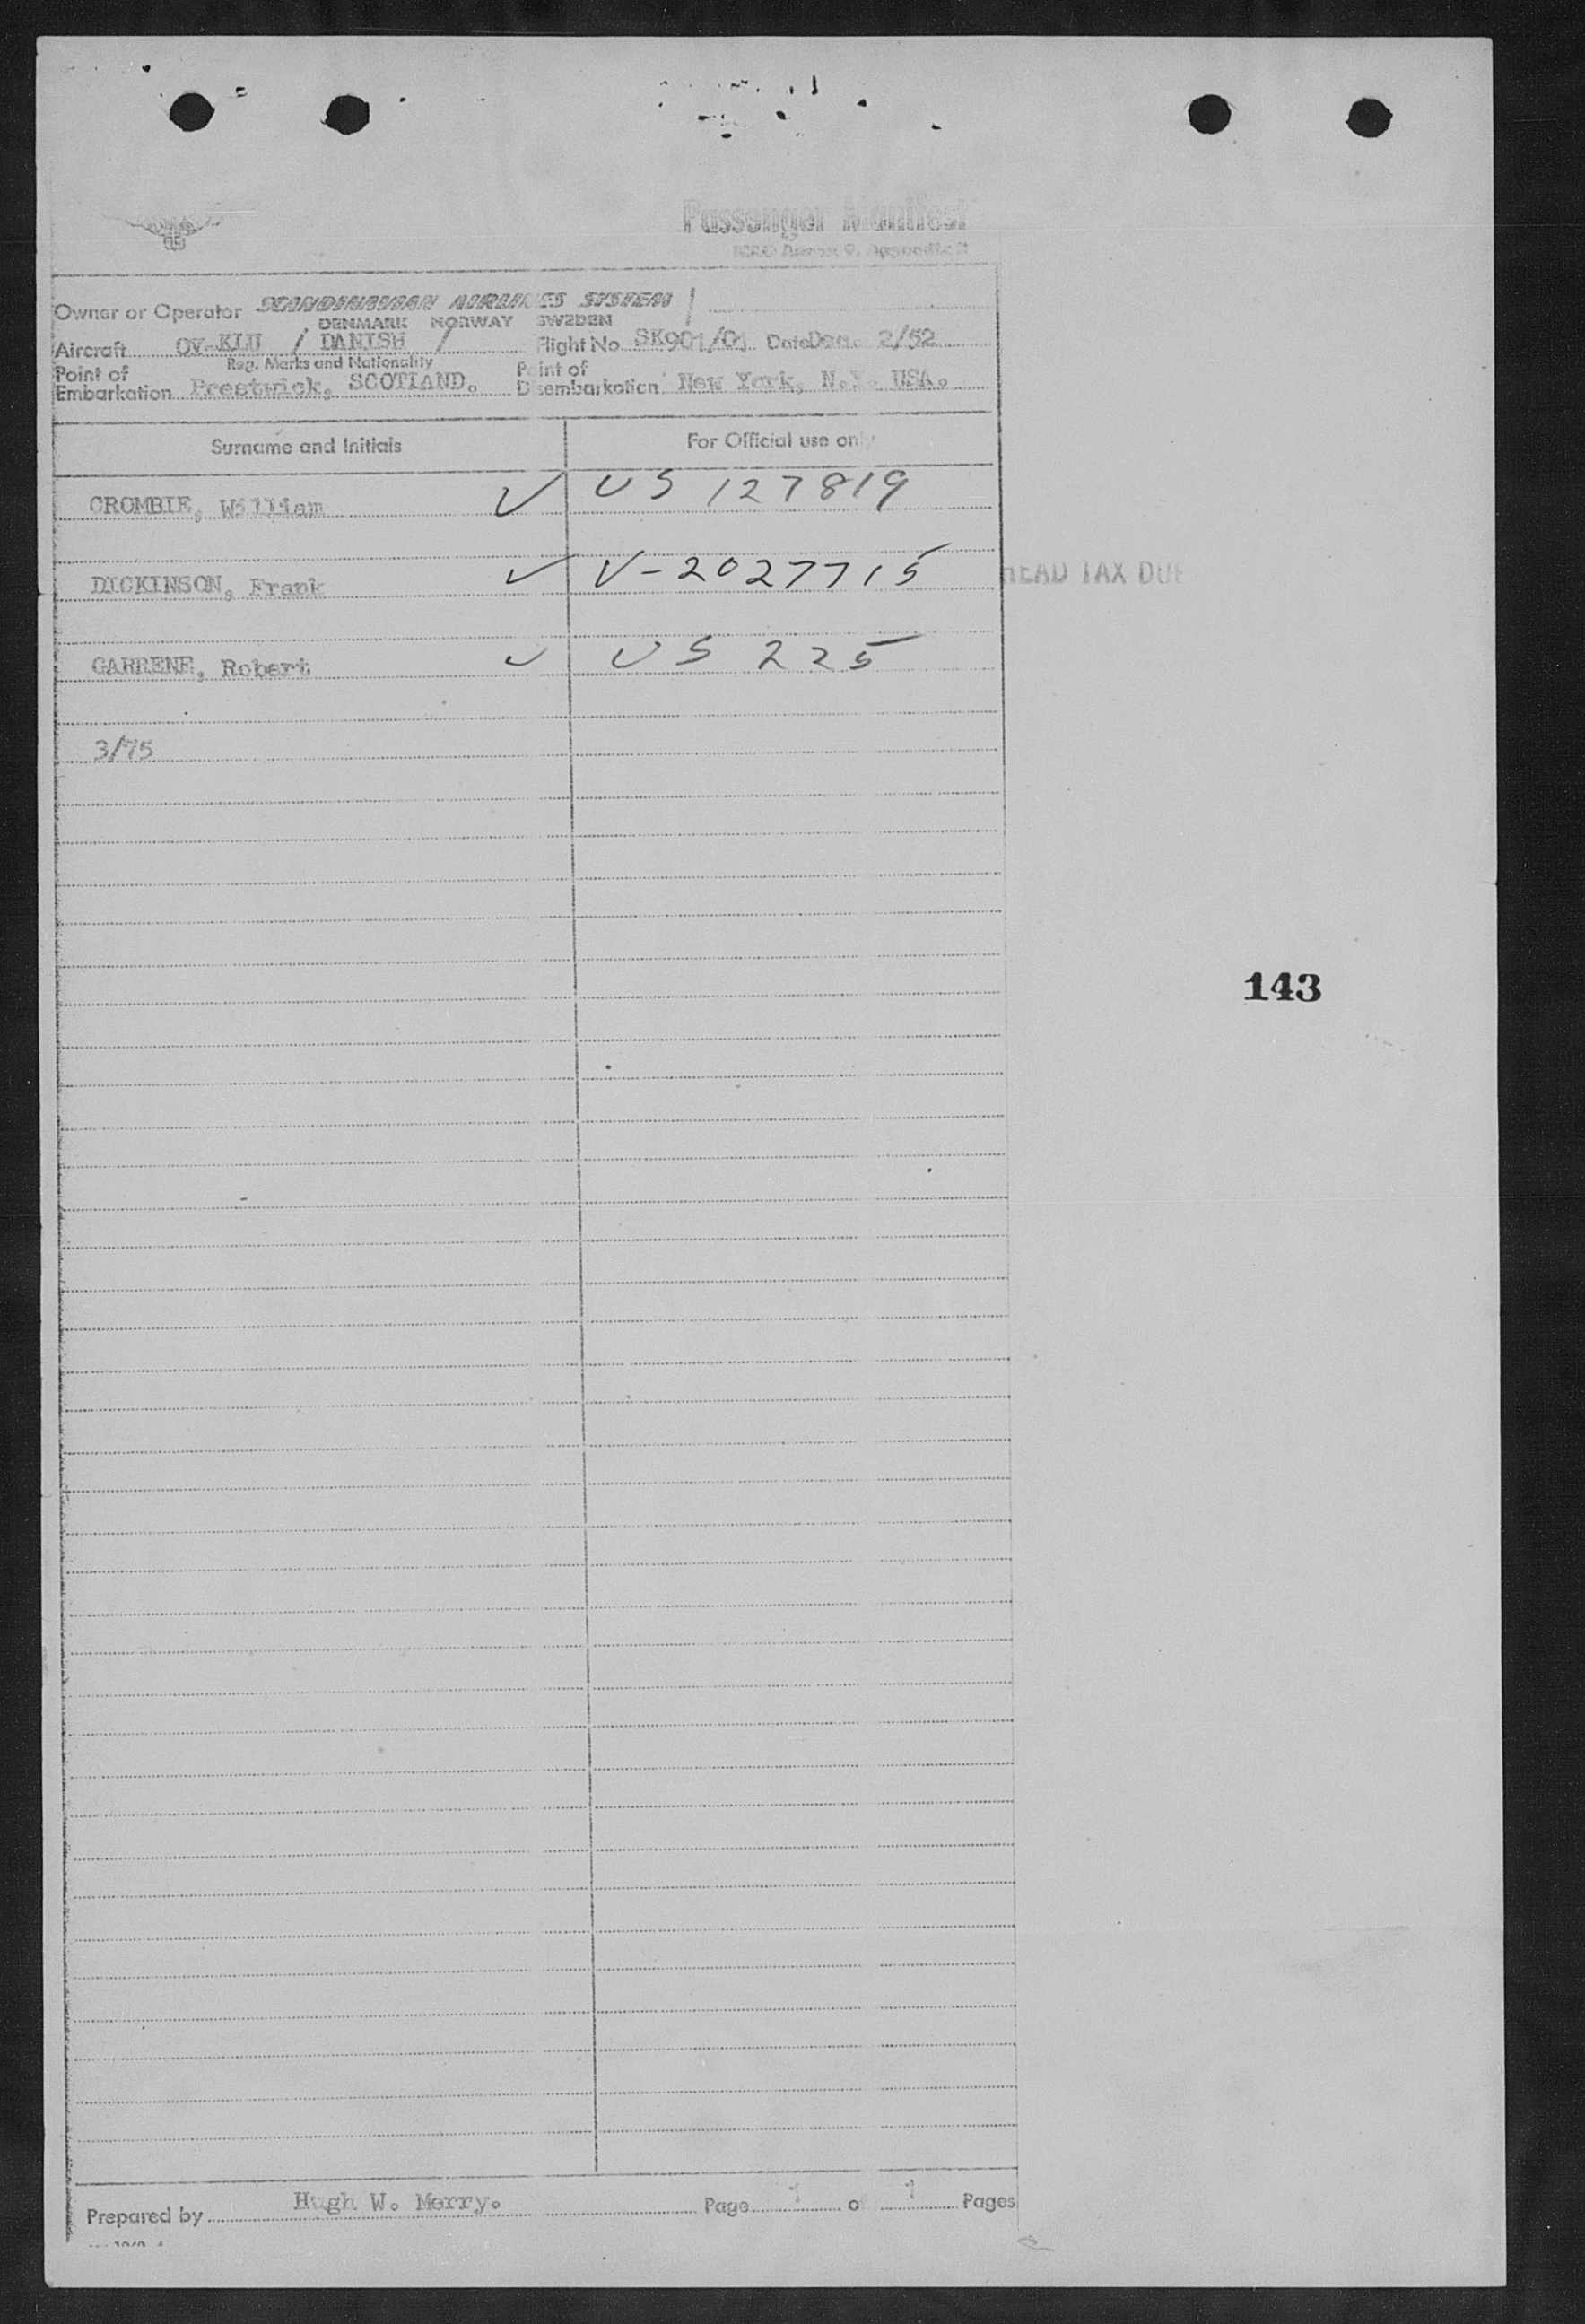 Passenger Manifest
Owner or Operator SCANDINAVIAN AIRLINES SYSTEM /
DENMARK NORWAY SWEDEN
Aircraft OY-KLU / DANISH / Flight No SK901/01 Date Dec. 2/52
Reg. Marks and Nationality
Point of Embarkation Prestwick, SCOTLAND. Point of Disembarkation New York, N.Y. USA.
Surname and Initials For Official use only
CROMBIE, William ✓ US 127819
DICKINSON, Frank ✓ V-2027715
HEAD TAX DUE
GARRENE, Robert ✓ US 225
3/75
143
Prepared by Hugh W. Merry. Page 1 of 1 Pages